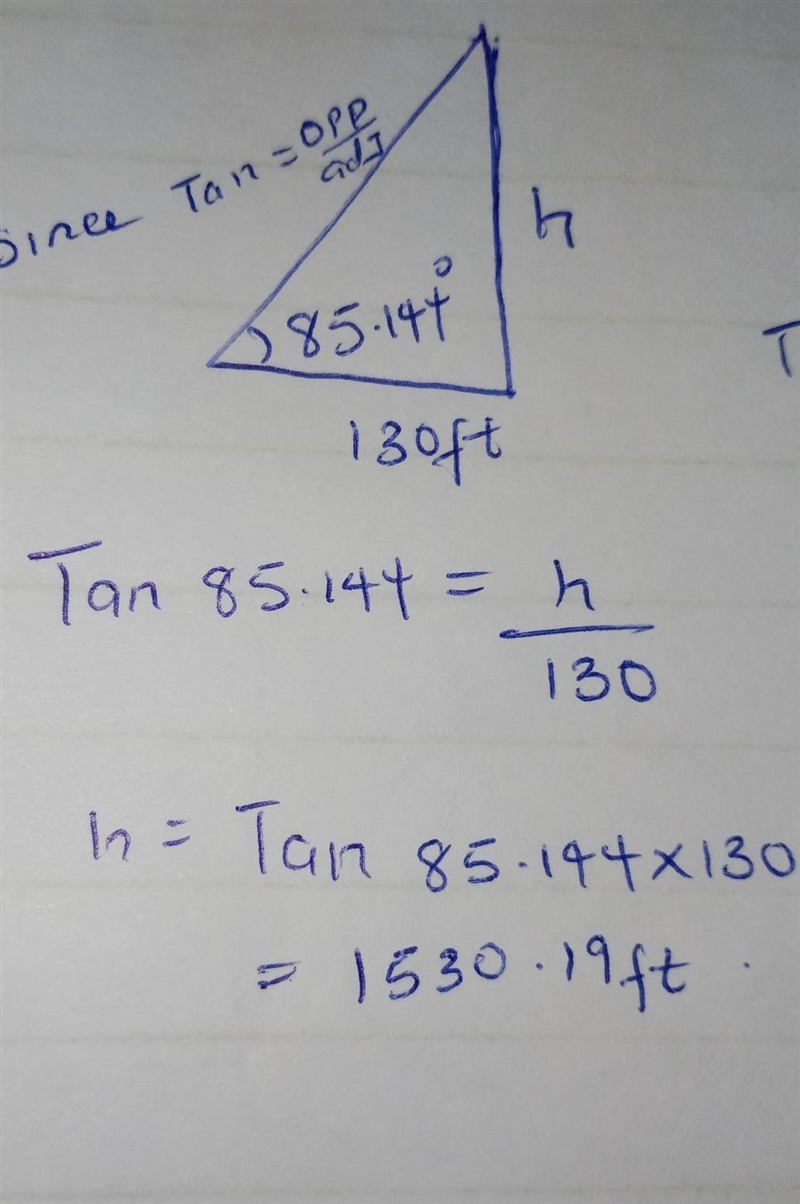 Since Tan = opp/adj
h
85.144°
130ft
T
Tan 85.144 = h/130
h = Tan 85.144 x 130
= 1530.19ft